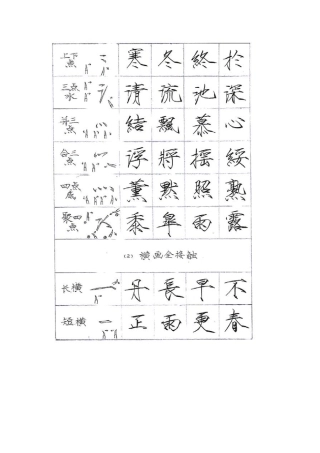 上下点 寒 冬 終 於
三点水 清 流 池 深
并三点 結 飄 慕 心
合三点 浮 將 摇 綏
四点底 薰 默 照 熟
聚四点 黍 雨 露
(2) 横画全接触
长横 丹 長 早 不
短横 正 雨 更 春